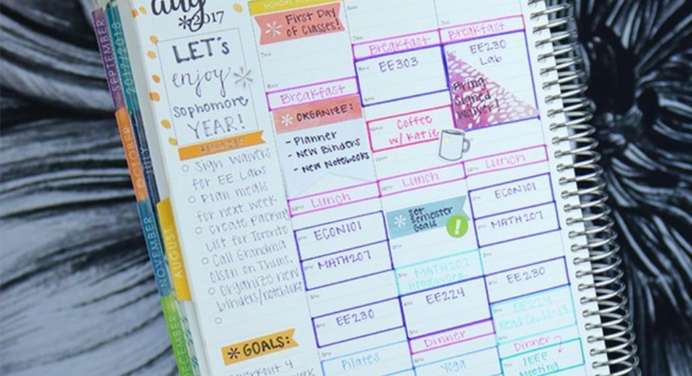 aug
*2017
LET'S
enjoy
sophomore
YEAR!
Sign Waivers
for EE Labs
Plan meals
for next week
Create Packing
List for Toronto
Call Grandma
Organize new
binders/notebooks
* GOALS:
SEPTEMBER
OCTOBER
NOVEMBER
AUGUST
First Day
of Classes!
Breakfast
* ORGANIZE:
- Planner
- New Binders
- New Notebooks
Lunch
ECON101
MATH207
EE230
Pilates
Breakfast
EE303
Coffee
w/ Katie
Lunch
* Set
Semester
Goals
!
MATH207
EE224
Dinner
Yoga
Breakfast
EE230
Lab
Bring
Signed
Lunch
ECON101
MATH207
EE230
EE224
Dinner
IEEE
Meeting